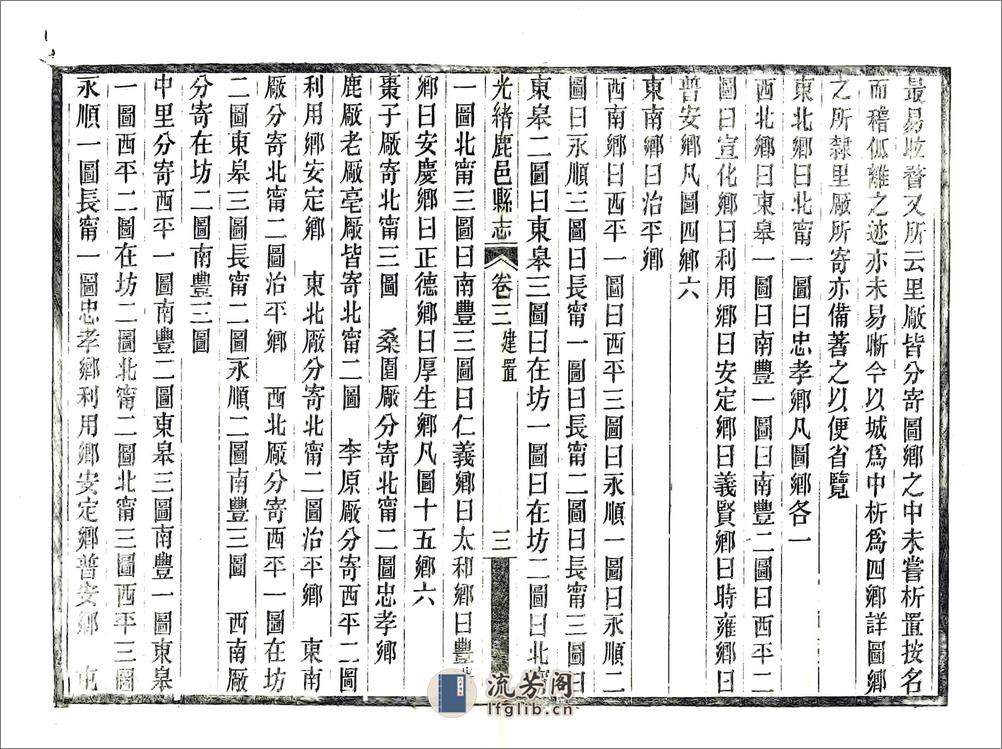 最易眩瞀又所云里厰皆分寄圖鄉之中未嘗析置按名
而稽佤離之迹亦未易晰今以城爲中析爲四鄉詳圖鄉
之所隸里厰所寄亦備著之以便省覽
東北鄉曰北甯一圖曰忠孝鄉凡圖鄉各一
西北鄉曰東皋一圖曰南豐一圖曰南豐二圖曰西平二
圖曰宣化鄉曰利用鄉曰安定鄉曰義賢鄉曰時雍鄉曰
普安鄉凡圖四鄉六
東南鄉曰治平鄉
西南鄉曰西平一圖曰西平三圖曰永順一圖曰永順二
圖曰永順三圖曰長甯一圖曰長甯二圖曰長甯三圖曰
東皋二圖曰東皋三圖曰在坊一圖曰在坊二圖曰北
光緒鹿邑縣志 卷三 建置 三
一圖北甯三圖曰南豐三圖曰仁義鄉曰太和鄉曰豐
鄉曰安慶鄉曰正德鄉曰厚生鄉凡圖十五鄉六
棗子厰寄北甯三圖 桑園厰分寄北甯二圖忠孝鄉
鹿厰老厰亳厰皆寄北甯二圖 李原厰分寄西平二圖
利用鄉安定鄉 東北厰分寄北甯二圖治平鄉 東南
厰分寄北甯二圖治平鄉 西北厰分寄西平一圖在坊
二圖東皋三圖長甯二圖永順二圖南豐三圖 西南厰
分寄在坊二圖南豐三圖
中里分寄西平一圖南豐二圖東皋三圖南豐一圖東皋
一圖西平二圖在坊二圖北甯二圖北甯三圖西平三圖
永順一圖長甯一圖忠孝鄉利用鄉安定鄉普安鄉
流芳阁
lfglib.cn